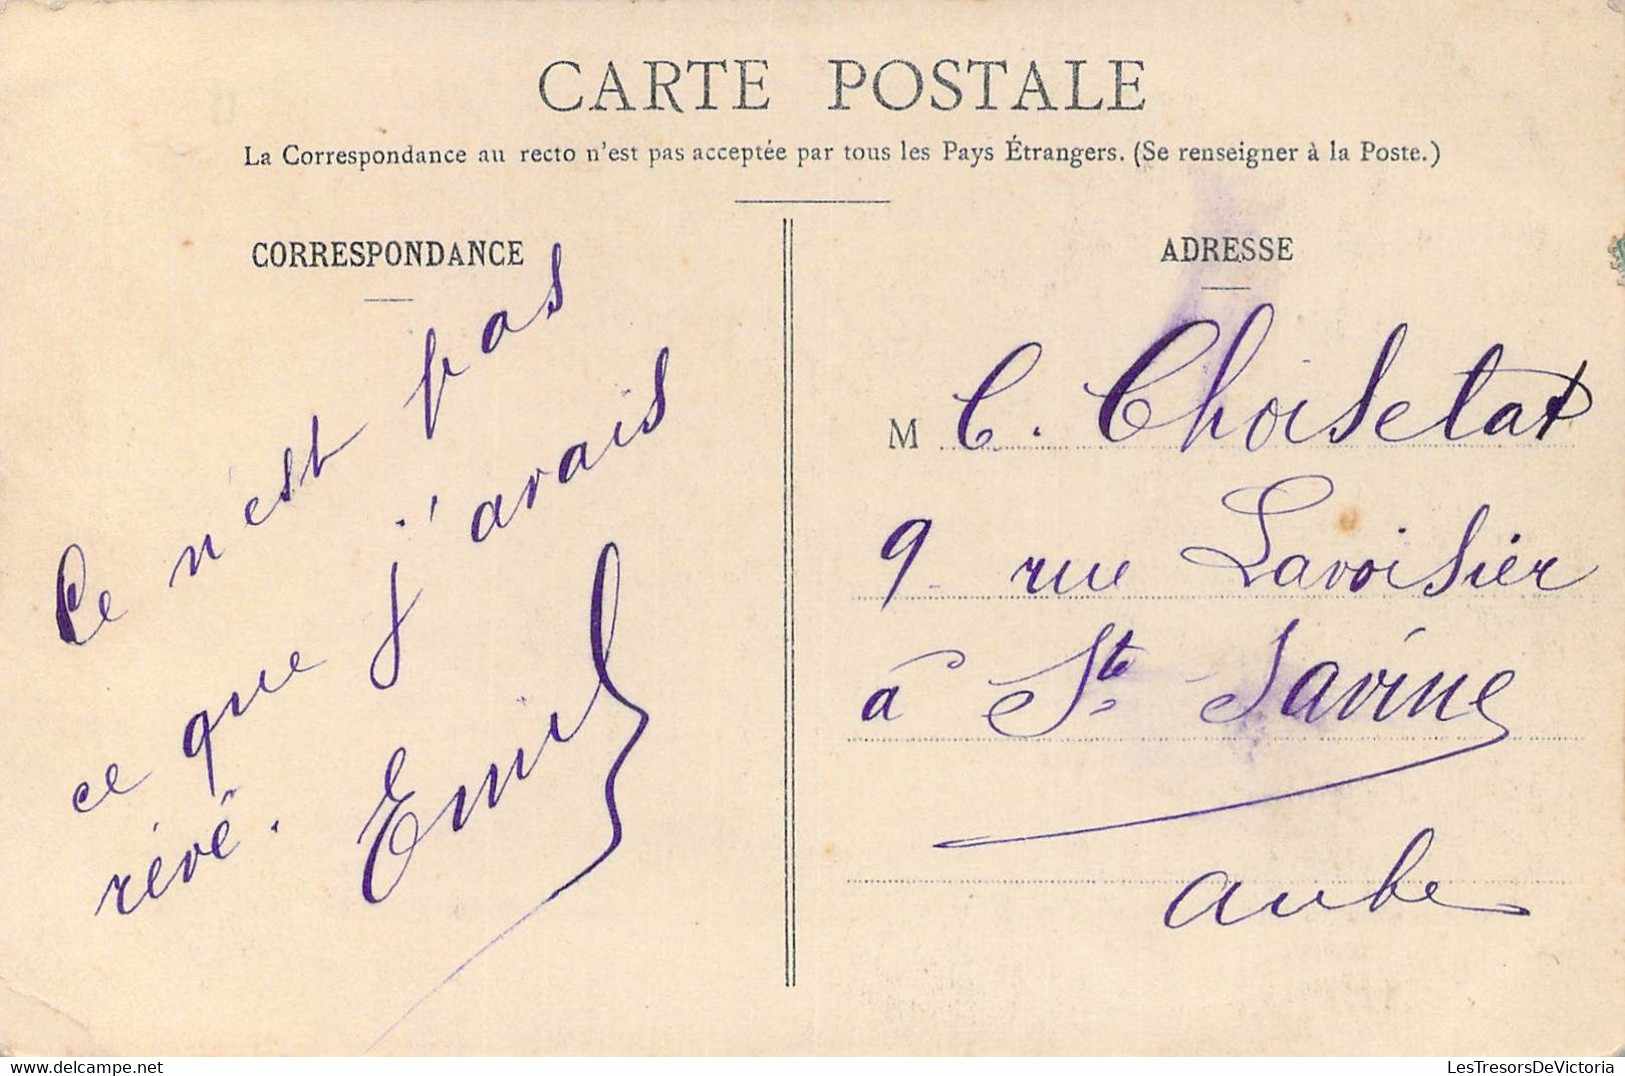 CARTE POSTALE
La Correspondance au recto n'est pas acceptée par tous les Pays Étrangers. (Se renseigner à la Poste.)
CORRESPONDANCE
Ce n'est pas
ce que j'avais
rêvé.
Emile
ADRESSE
M C. Choiselat
9 rue Lavoisier
à Ste Savine
aube
LesTresorsDeVictoria.com